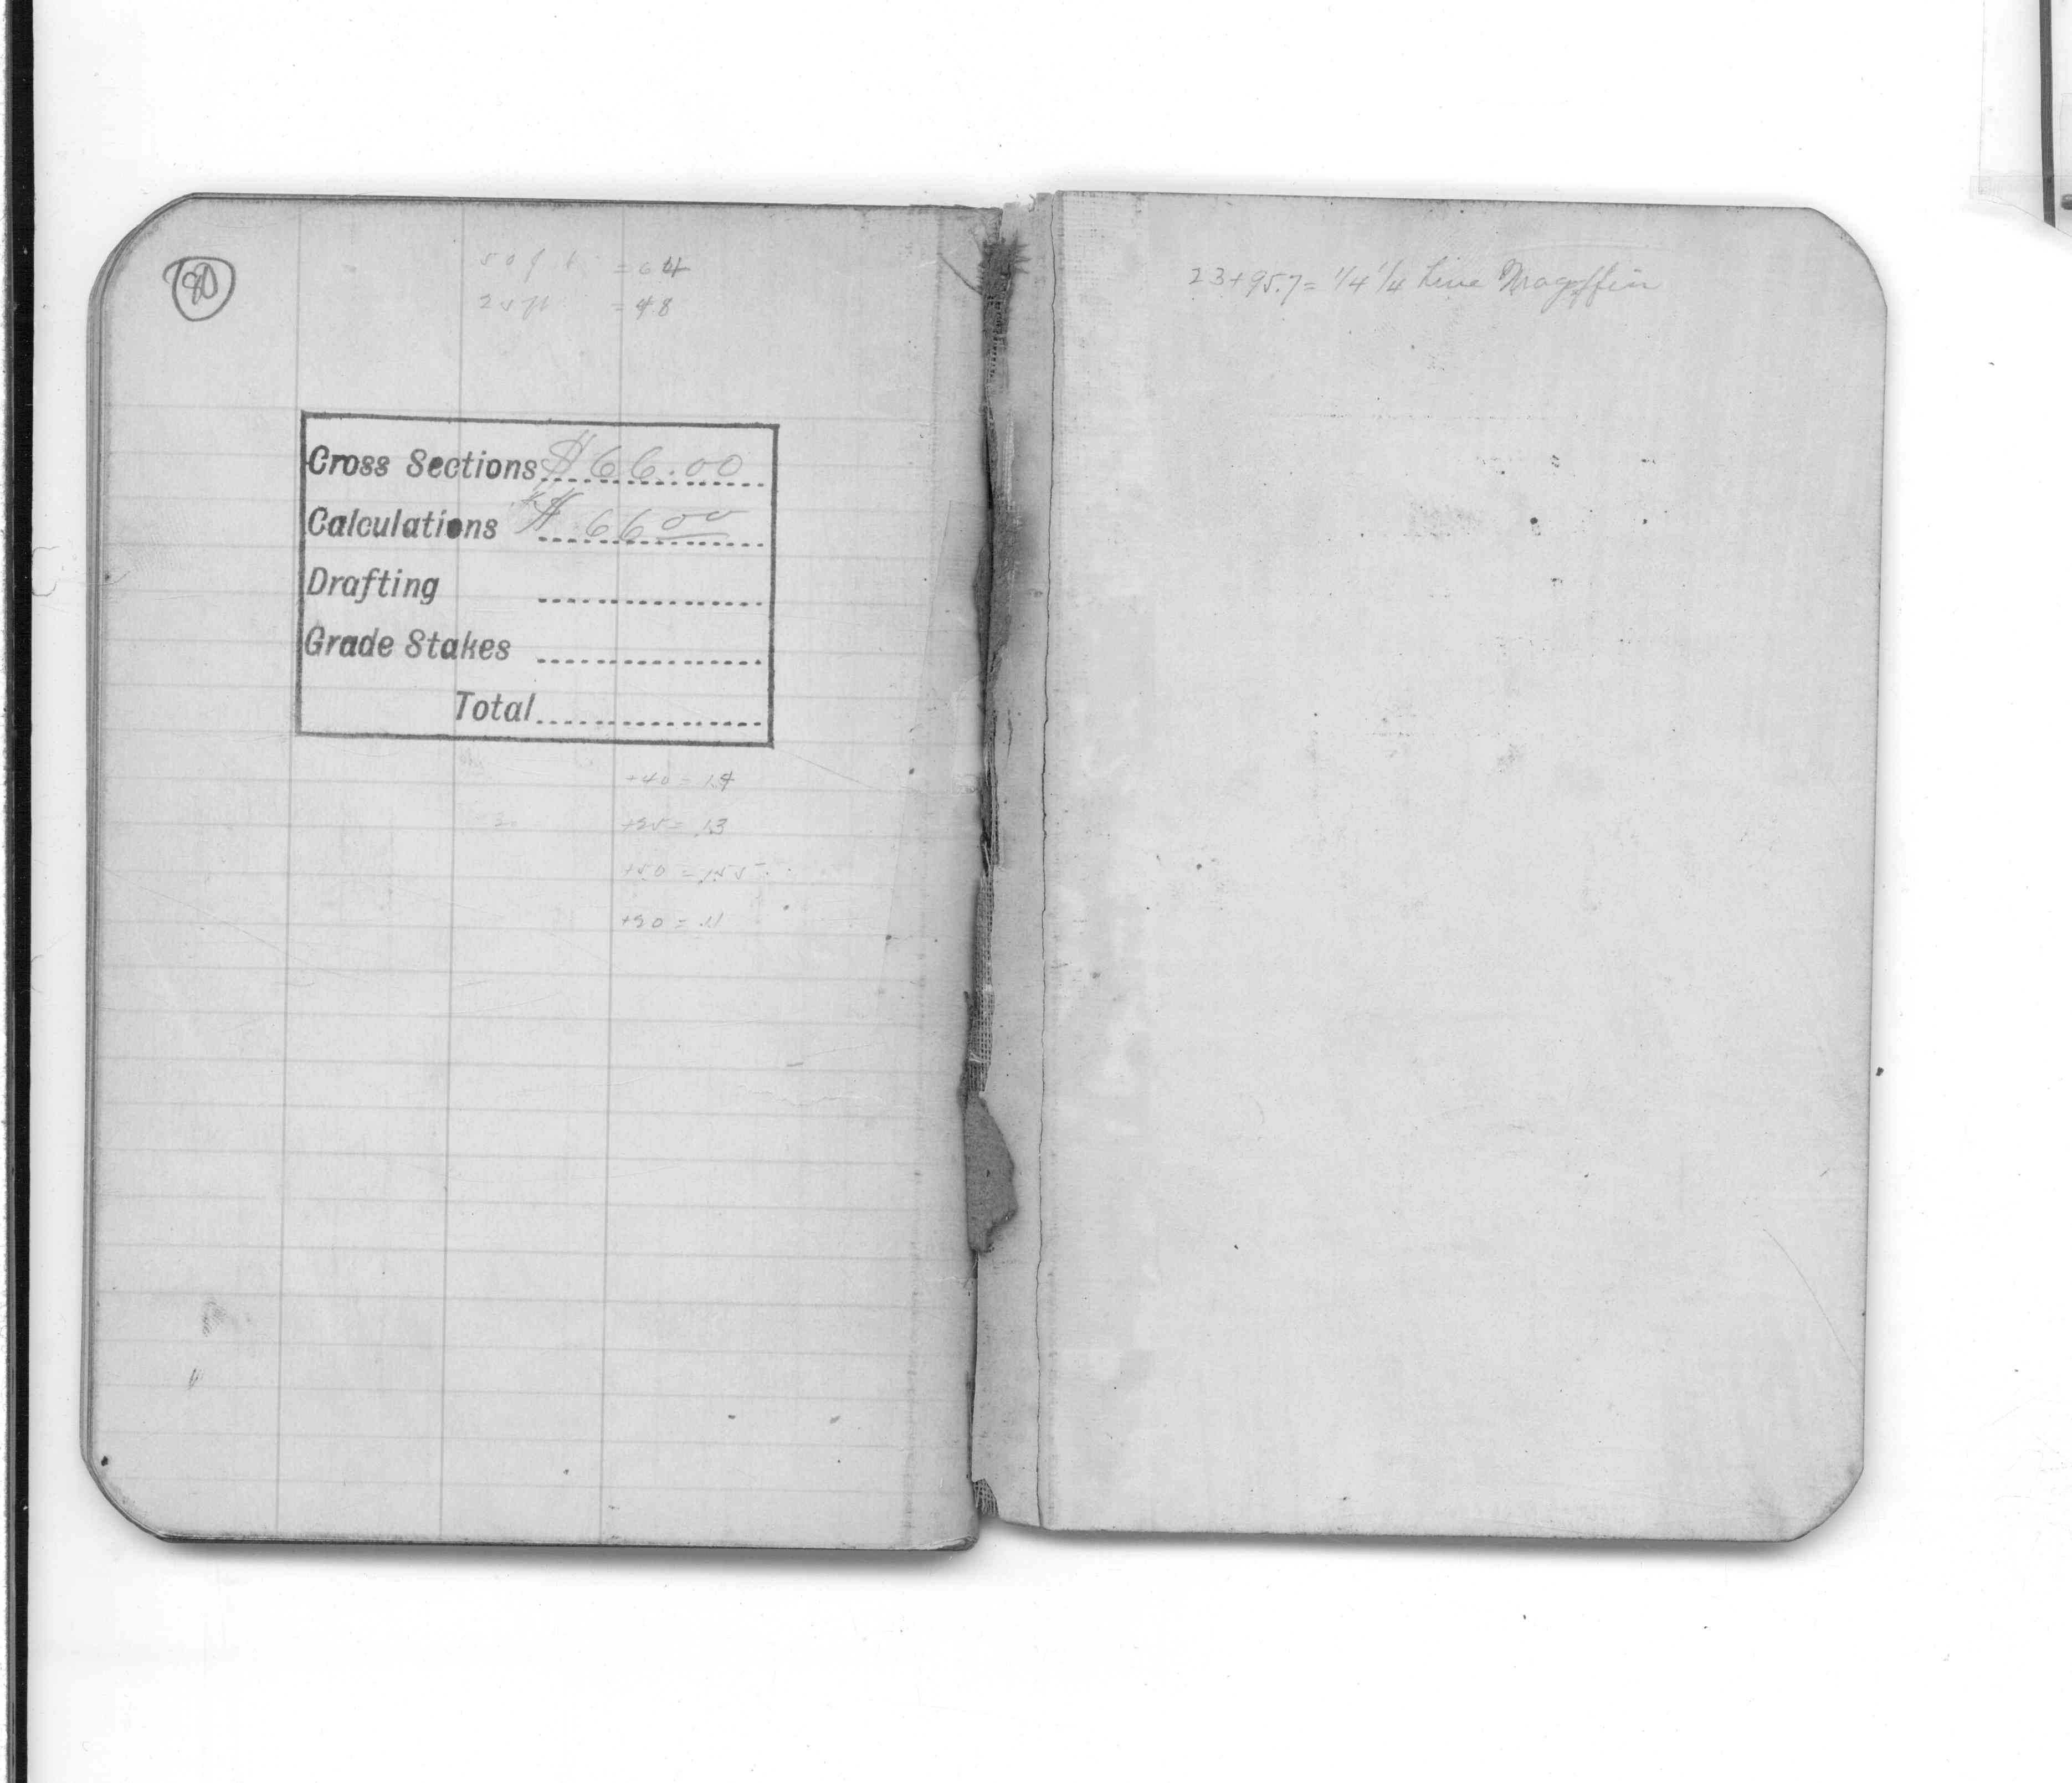 80
50 ft = 64
25 ft = 48
Cross Sections $66.00
Calculations $66 00
Drafting
Grade Stakes
Total
+40 = 1.4
+25 = .13
+50 = .155
+90 = .11
23+95.7 = 1/4 1/4 Line Magoffin